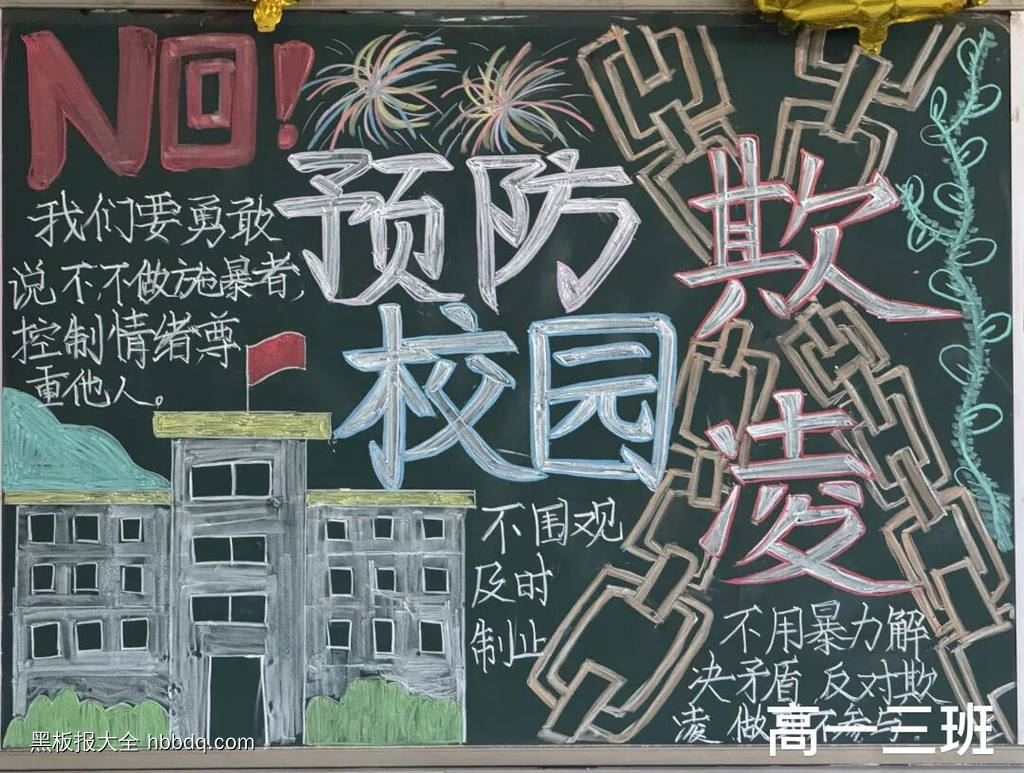 NO!
预防
校园
欺
凌
我们要勇敢
说不,不做施暴者,
控制情绪尊
重他人。
不围观
及时
制止
不用暴力解
决矛盾 反对欺
凌 做
高一三班
黑板报大全 hbbdq.com